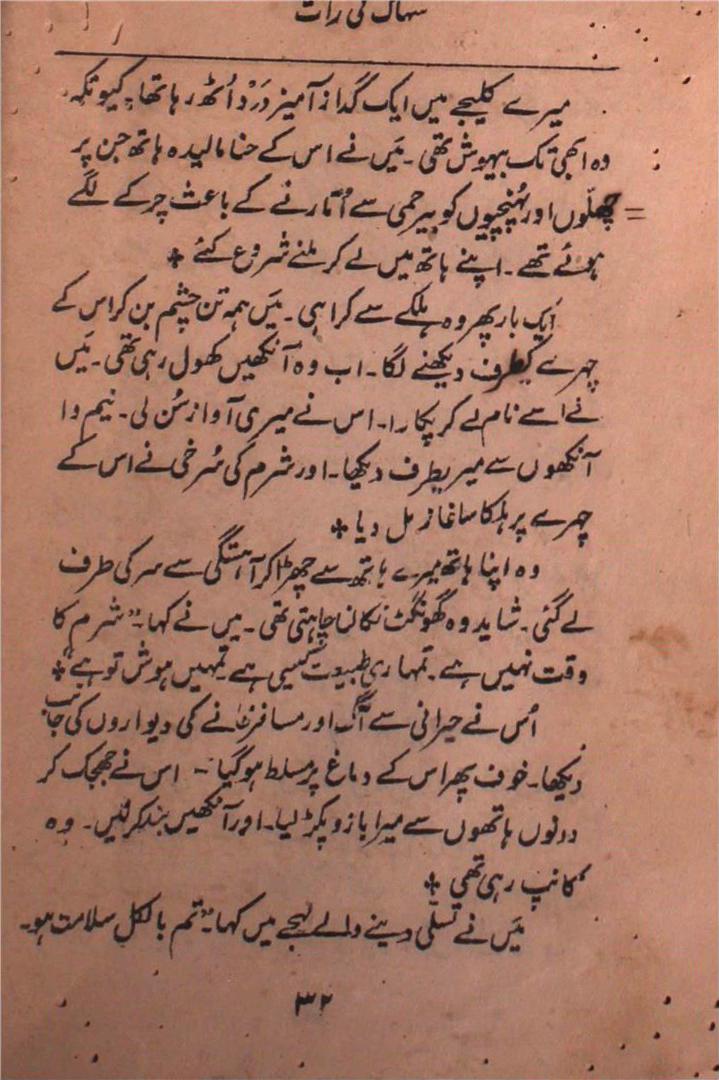 سہاگ کی رات
میرے کلیجے میں ایک گداز آمیز درد اُٹھ رہا تھا۔ کیونکہ
وہ ابھی تک بیہوش تھی۔ مَیں نے اس کے حنا مالیدہ ہاتھ جن پر
چھلّوں اور پُہنچیوں کو بیرحمی سے اُتارنے کے باعث چرکے لگے
ہوئے تھے۔ اپنے ہاتھ میں لے کر ملنے شروع کئے *
ایک بار پھر وہ ہلکے سے کراہی۔ مَیں ہمہ تن چشم بن کر اس کے
چہرے کیطرف دیکھنے لگا۔ اب وہ آنکھیں کھول رہی تھی۔ مَیں
نے اسے نام لے کر پکارا۔ اس نے میری آواز سُن لی۔ نیم وا
آنکھوں سے میریطرف دیکھا۔ اور شرم کی سُرخی نے اس کے
چہرے پر ہلکا سا غازہ مل دیا *
وہ اپنا ہاتھ میرے ہاتھ سے چھڑا کر آہستگی سے سر کی طرف
لے گئی۔ شاید وہ گھونگٹ نکالنا چاہتی تھی۔ میں نے کہا۔ ”شرم کا
وقت نہیں ہے۔ تمہاری طبیعت کیسی ہے۔ تمہیں ہوش تو ہے“ *
اُس نے حیرانی سے آگ اور مسافر خانے کی دیواروں کی جانب
دیکھا۔ خوف پھر اس کے دماغ پر مسلط ہو گیا ۔ اس نے جھجک کر
دونوں ہاتھوں سے میرا بازو پکڑ لیا۔ اور آنکھیں بند کر لیں۔ وہ
کانپ رہی تھی *
مَیں نے تسلّی دینے والے لہجے میں کہا۔ ”تم بالکل سلامت ہو۔
۳۲